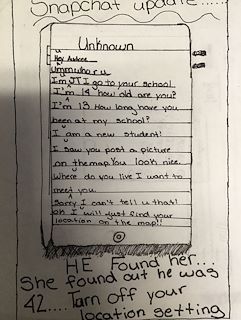 Snapchat update.....
Unknown
u
Hey
ummwhor u
Im JT I go to your school
I'm 14 how old are you?
I'm 13 How long have you
been at my school?
I am a new student!
I saw you post a picture
on the map. You look nice.
Where do you live I want to
meet you.
Sorry I can't tell u that!
oh I will just find your
location on the map!!
HE Found her...
She found out he was
42.... Turn off your
location setting